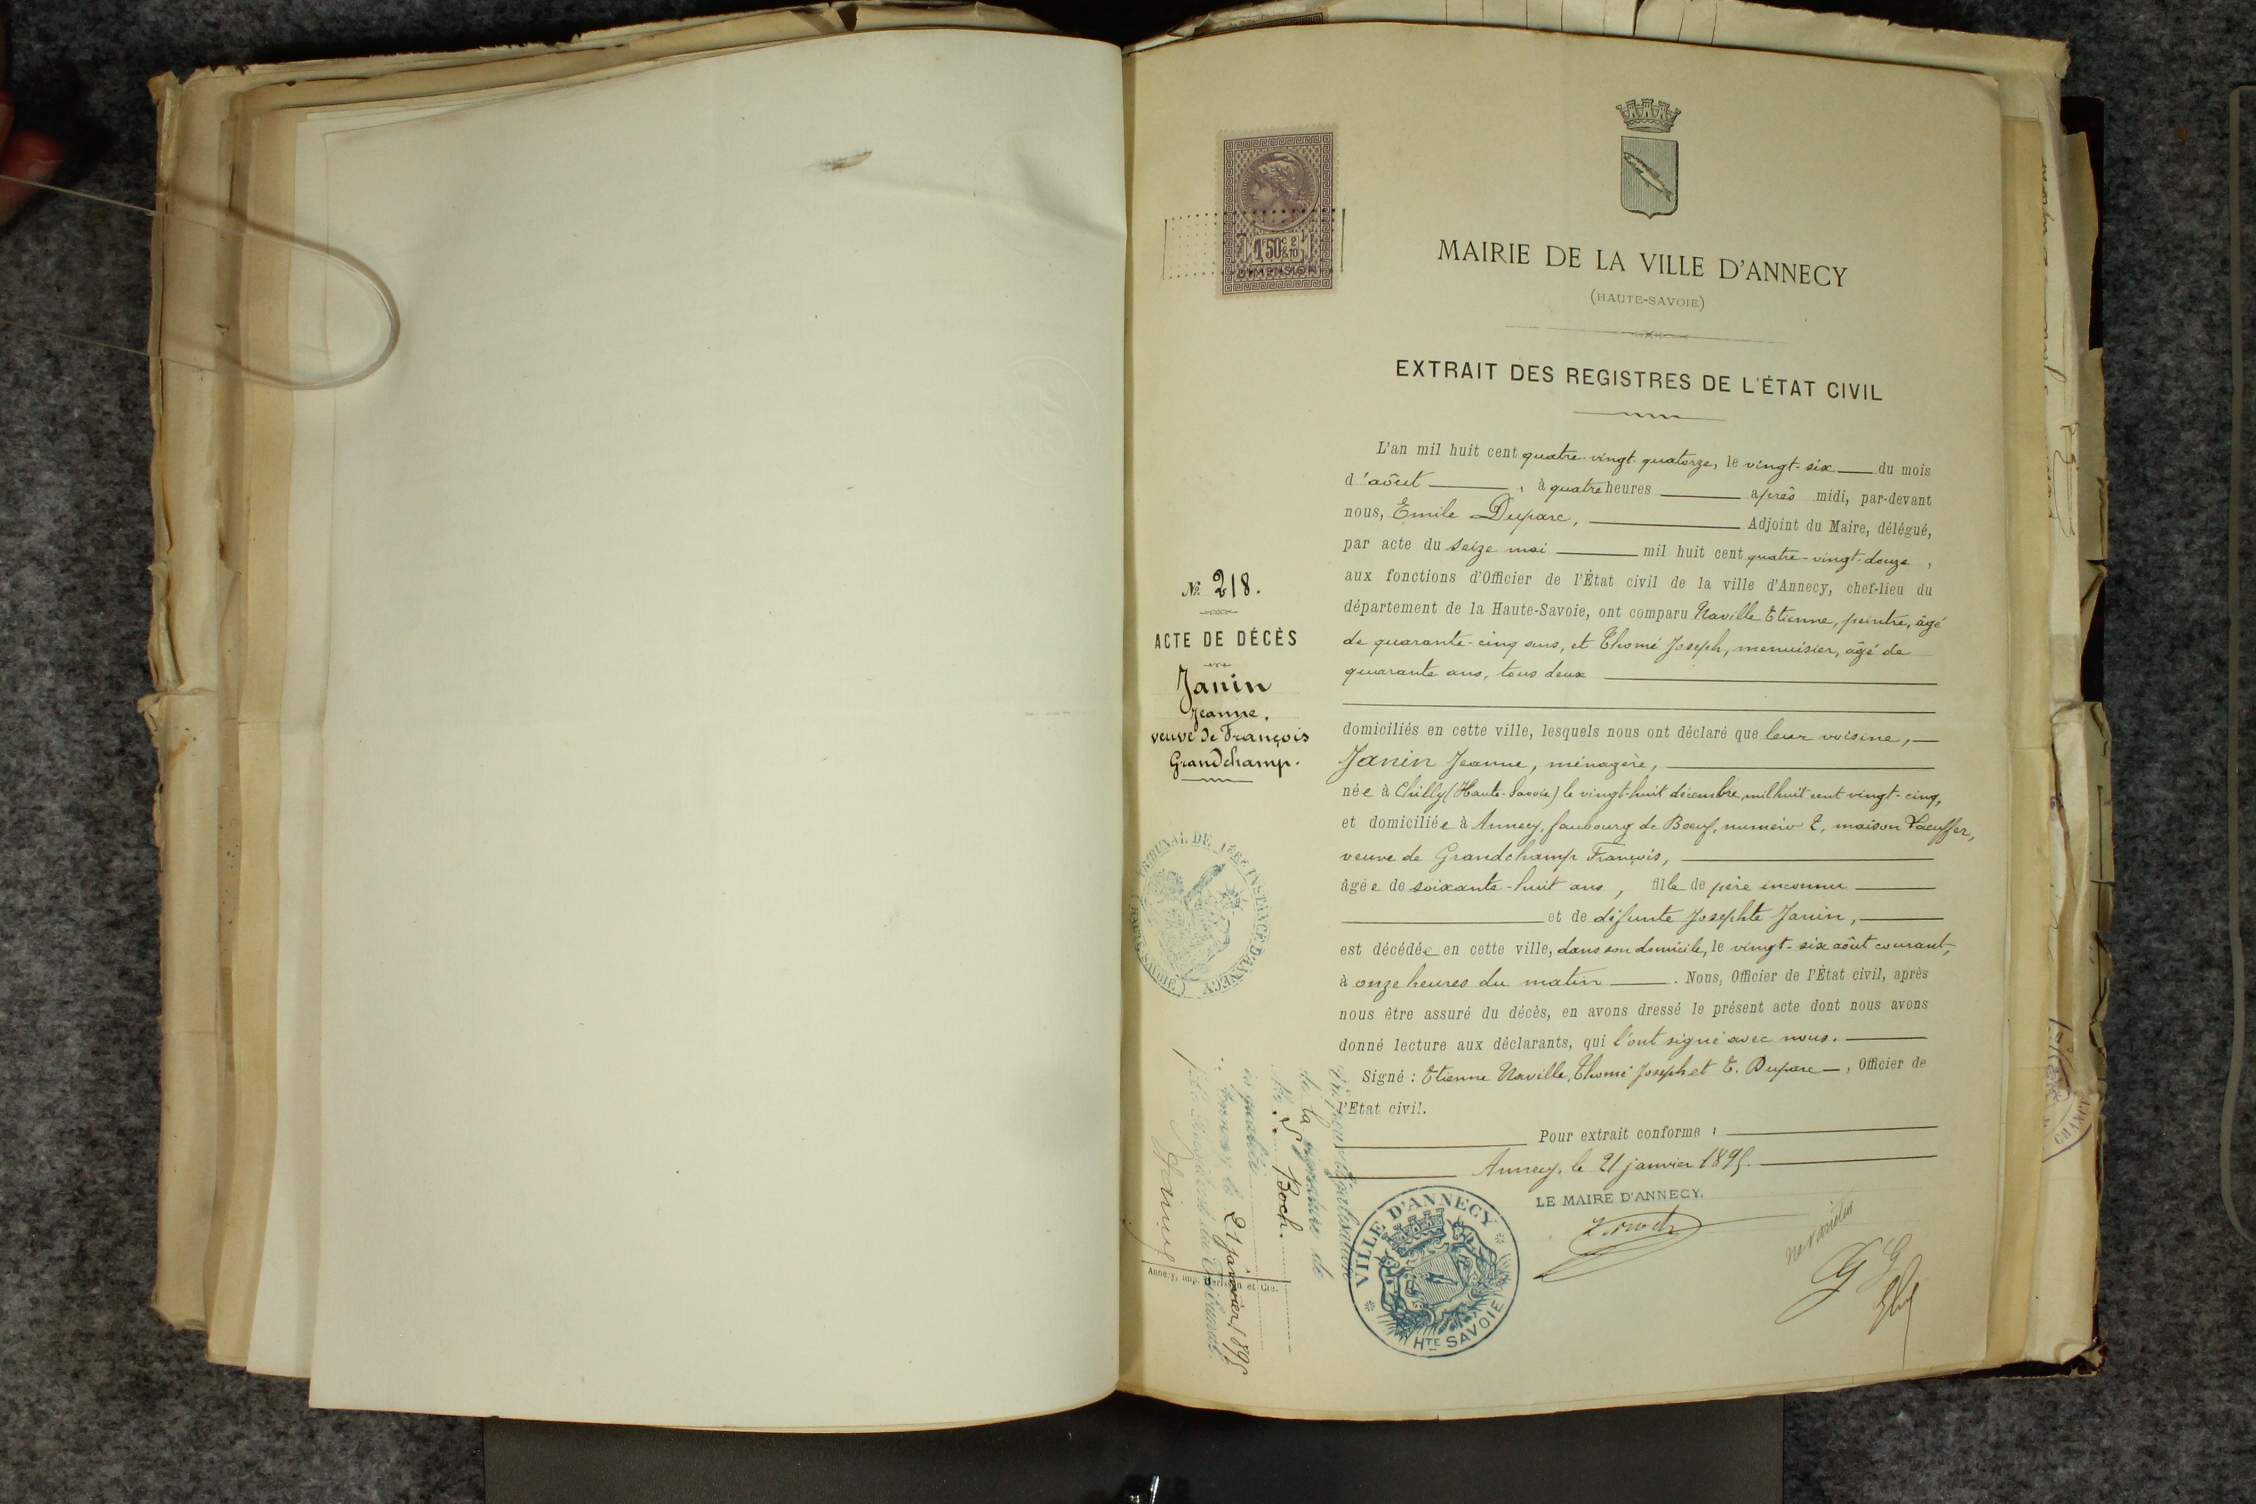 1f50c 2 &10
DIMENSION
MAIRIE DE LA VILLE D'ANNECY
(HAUTE-SAVOIE)
EXTRAIT DES REGISTRES DE L'ÉTAT CIVIL
L'an mil huit cent quatre-vingt-quatorze, le vingt-six du mois
d'août, à quatre heures après midi, par-devant
nous, Emile Duparc, Adjoint du Maire, délégué,
par acte du seize mai mil huit cent quatre-vingt-douze,
aux fonctions d'Officier de l'État civil de la ville d'Annecy, chef-lieu du
département de la Haute-Savoie, ont comparu Naville Etienne, peintre, âgé
de quarante-cinq ans, et Thomé Joseph, menuisier, âgé de
quarante ans, tous deux
domiciliés en cette ville, lesquels nous ont déclaré que leur voisine,
Janin Jeanne, ménagère,
née à Chilly (Haute-Savoie) le vingt-huit décembre mil huit cent vingt-cinq,
et domiciliée à Annecy, faubourg de Bœuf, numéro 2, maison
veuve de Grandchamp François,
âgée de soixante-huit ans, fille de père inconnu
et de défunte Josephte Janin,
est décédée en cette ville, dans son domicile, le vingt-six août courant,
à onze heures du matin. Nous, Officier de l'État civil, après
nous être assuré du décès, en avons dressé le présent acte dont nous avons
donné lecture aux déclarants, qui l'ont signé avec nous.
Signé : Etienne Naville, Thomé Joseph et E. Duparc, Officier de
l'Etat civil.
Pour extrait conforme :
Annecy, le 21 janvier 1895.
LE MAIRE D'ANNECY,
VILLE D'ANNECY
HTE SAVOIE
No 218.
ACTE DE DÉCÈS
Janin
Jeanne,
veuve de François
Grandchamp.
TRIBUNAL DE 1ERE INSTANCE D'ANNECY
(HAUTE-SAVOIE)
Vu pour légalisation
de la signature de
M. Boch
sa qualité
Annecy, le 21 janvier 1895
Annecy, imp. et Cie.